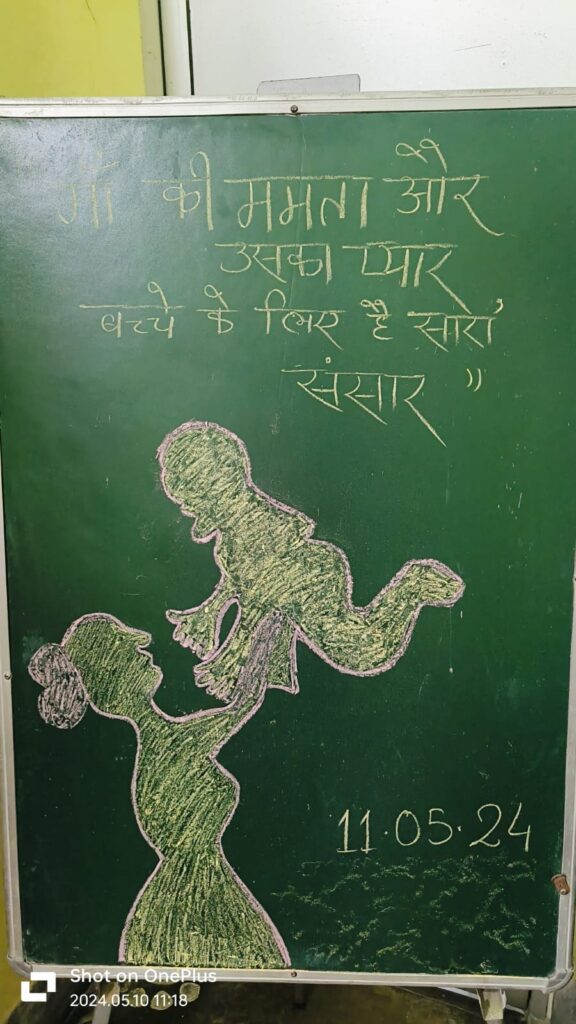 माँ की ममता और
उसका प्यार
बच्चे के लिए है सारा
संसार "
11.05.24
Shot on OnePlus
2024.05.10 11:18